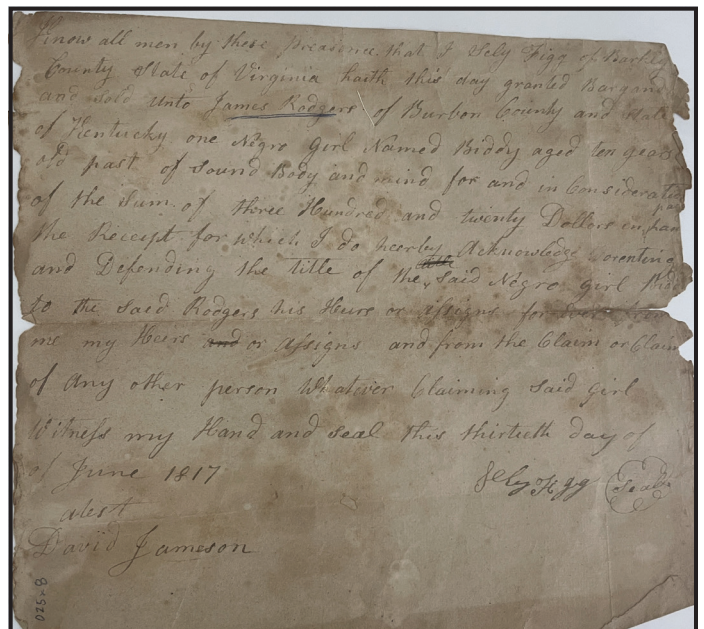 Know all men by these preasence that I Sely Figg of Barkly
County State of Virginia haith this day granted Bargand
and sold unto James Rodgers of Burbon County and state
of Kentucky one Negro Girl Named Biddy aged ten
old past of sound Body and mind for and in Considerati
of the Sum of three Hundred and twenty Dollars in
the Receipt for which I do hearby Acknowledge worenting
and Defending the title of the said Negro girl
to the said Rodgers his Heurs or assigns for ever
me my Heirs and or assigns and from the Claim or Claim
of any other person Whatever Claiming said girl
Witness my Hand and seal this thirtieth day of
of June 1817
Sely Figg Seal
atest
David Jameson
025-8